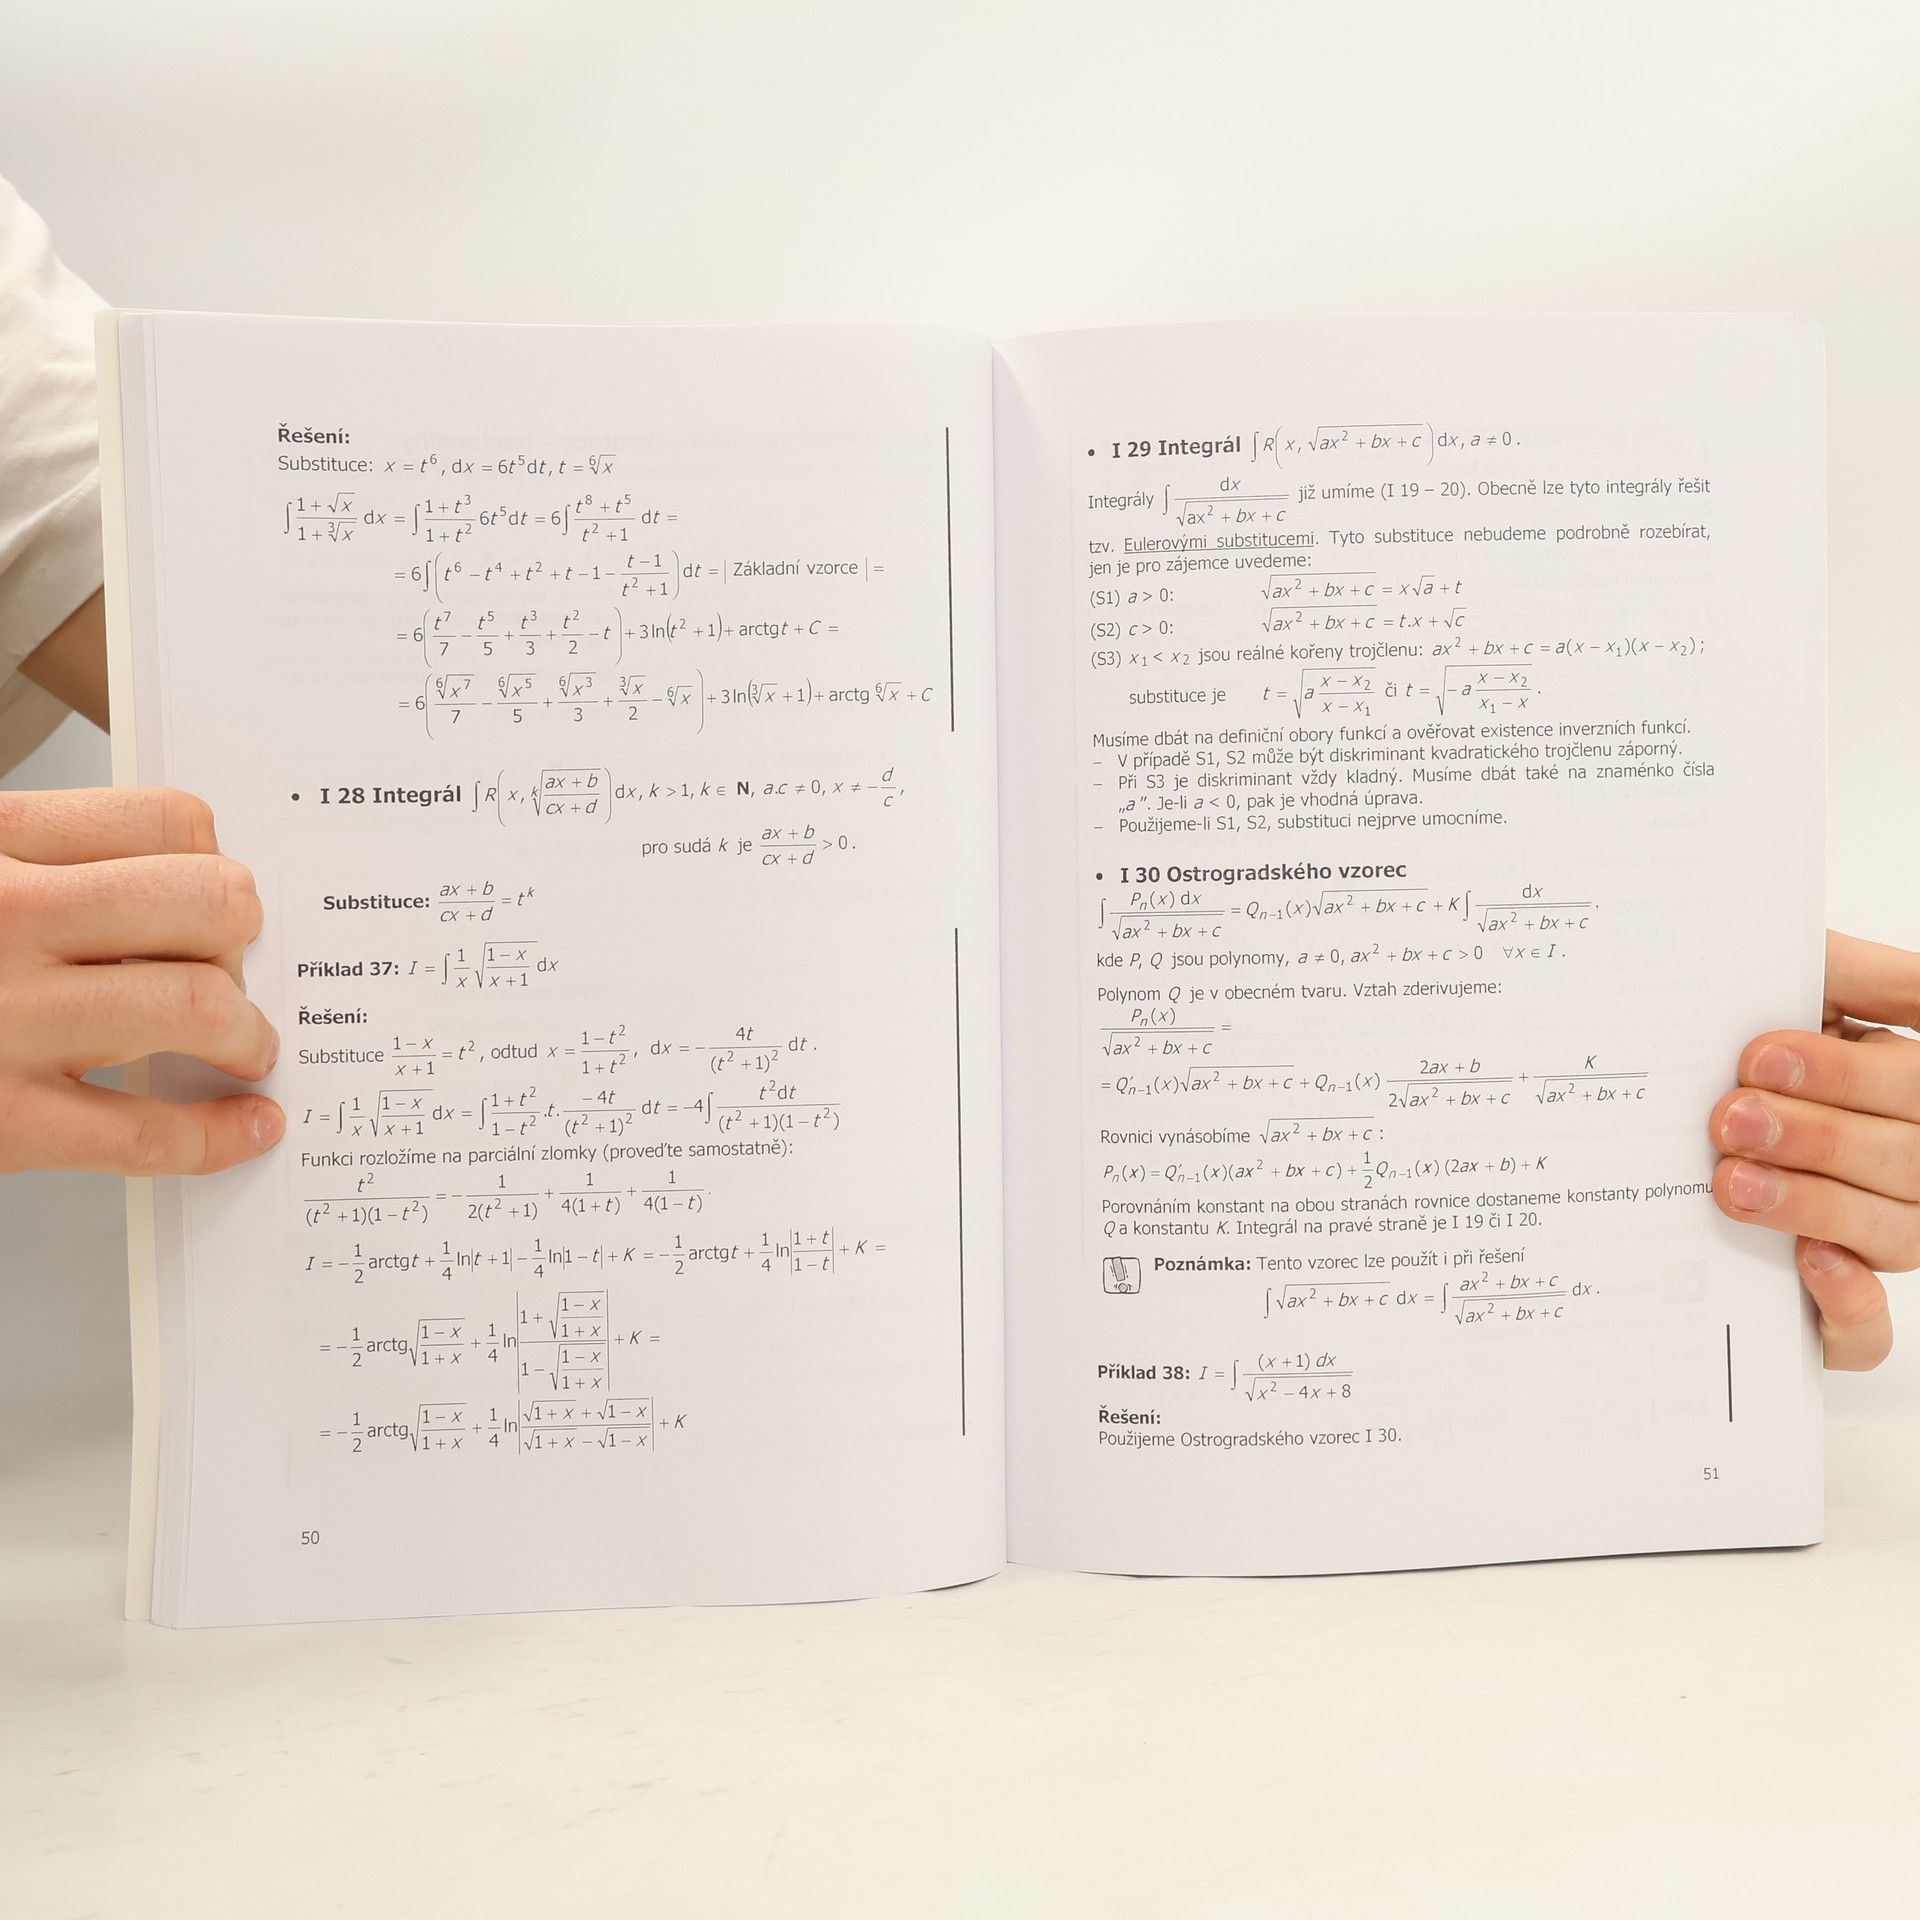 Řešení:
Substituce: x = t⁶, dx = 6t⁵dt, t = ⁶√x
∫ (1 + √x)/(1 + ³√x) dx = ∫ (1 + t³)/(1 + t²) 6t⁵dt = 6∫ (t⁸ + t⁵)/(t² + 1) dt =
= 6∫ (t⁶ − t⁴ + t² + t − 1 − (t − 1)/(t² + 1)) dt = | Základní vzorce | =
= 6(t⁷/7 − t⁵/5 + t³/3 + t²/2 − t) + 3 ln(t² + 1) + arctgt + C =
= 6(⁶√x⁷/7 − ⁶√x⁵/5 + ⁶√x³/3 + ³√x/2 − ⁶√x) + 3 ln(³√x + 1) + arctg ⁶√x + C
• I 28 Integrál ∫ R(x, ᵏ√((ax + b)/(cx + d))) dx, k > 1, k ∈ N, a.c ≠ 0, x ≠ −d/c,
pro sudá k je (ax + b)/(cx + d) > 0.
Substituce: (ax + b)/(cx + d) = tᵏ
Příklad 37: I = ∫ (1/x) √((1 − x)/(x + 1)) dx
Řešení:
Substituce (1 − x)/(x + 1) = t², odtud x = (1 − t²)/(1 + t²), dx = −4t/(t² + 1)² dt.
I = ∫ (1/x) √((1 − x)/(x + 1)) dx = ∫ (1 + t²)/(1 − t²) .t. (−4t)/(t² + 1)² dt = −4∫ t²dt/((t² + 1)(1 − t²))
Funkci rozložíme na parciální zlomky (proveďte samostatně):
t²/((t² + 1)(1 − t²)) = −1/(2(t² + 1)) + 1/(4(1 + t)) + 1/(4(1 − t)).
I = −(1/2) arctgt + (1/4) ln|t + 1| − (1/4) ln|1 − t| + K = −(1/2) arctgt + (1/4) ln|(1 + t)/(1 − t)| + K =
= −(1/2) arctg√((1 − x)/(1 + x)) + (1/4) ln|(1 + √((1 − x)/(1 + x)))/(1 − √((1 − x)/(1 + x)))| + K =
= −(1/2) arctg√((1 − x)/(1 + x)) + (1/4) ln|(√(1 + x) + √(1 − x))/(√(1 + x) − √(1 − x))| + K
50
• I 29 Integrál ∫ R(x, √(ax² + bx + c)) dx, a ≠ 0.
Integrály ∫ dx/√(ax² + bx + c) již umíme (I 19 – 20). Obecně lze tyto integrály řešit
tzv. Eulerovými substitucemi. Tyto substituce nebudeme podrobně rozebírat,
jen je pro zájemce uvedeme:
(S1) a > 0: √(ax² + bx + c) = x√a + t
(S2) c > 0: √(ax² + bx + c) = t.x + √c
(S3) x₁ < x₂ jsou reálné kořeny trojčlenu: ax² + bx + c = a(x − x₁)(x − x₂);
substituce je t = √(a (x − x₂)/(x − x₁)) či t = √(−a (x − x₂)/(x₁ − x)).
Musíme dbát na definiční obory funkcí a ověřovat existence inverzních funkcí.
– V případě S1, S2 může být diskriminant kvadratického trojčlenu záporný.
– Při S3 je diskriminant vždy kladný. Musíme dbát také na znaménko čísla
„a". Je-li a < 0, pak je vhodná úprava.
– Použijeme-li S1, S2, substituci nejprve umocníme.
• I 30 Ostrogradského vzorec
∫ Pₙ(x) dx/√(ax² + bx + c) = Qₙ₋₁(x)√(ax² + bx + c) + K∫ dx/√(ax² + bx + c),
kde P, Q jsou polynomy, a ≠ 0, ax² + bx + c > 0 ∀x ∈ I.
Polynom Q je v obecném tvaru. Vztah zderivujeme:
Pₙ(x)/√(ax² + bx + c) =
= Q′ₙ₋₁(x)√(ax² + bx + c) + Qₙ₋₁(x) (2ax + b)/(2√(ax² + bx + c)) + K/√(ax² + bx + c)
Rovnici vynásobíme √(ax² + bx + c) :
Pₙ(x) = Q′ₙ₋₁(x)(ax² + bx + c) + (1/2)Qₙ₋₁(x) (2ax + b) + K
Porovnáním konstant na obou stranách rovnice dostaneme konstanty polynomu
Q a konstantu K. Integrál na pravé straně je I 19 či I 20.
Poznámka: Tento vzorec lze použít i při řešení
∫ √(ax² + bx + c) dx = ∫ (ax² + bx + c)/√(ax² + bx + c) dx.
Příklad 38: I = ∫ (x + 1) dx/√(x² − 4x + 8)
Řešení:
Použijeme Ostrogradského vzorec I 30.
51